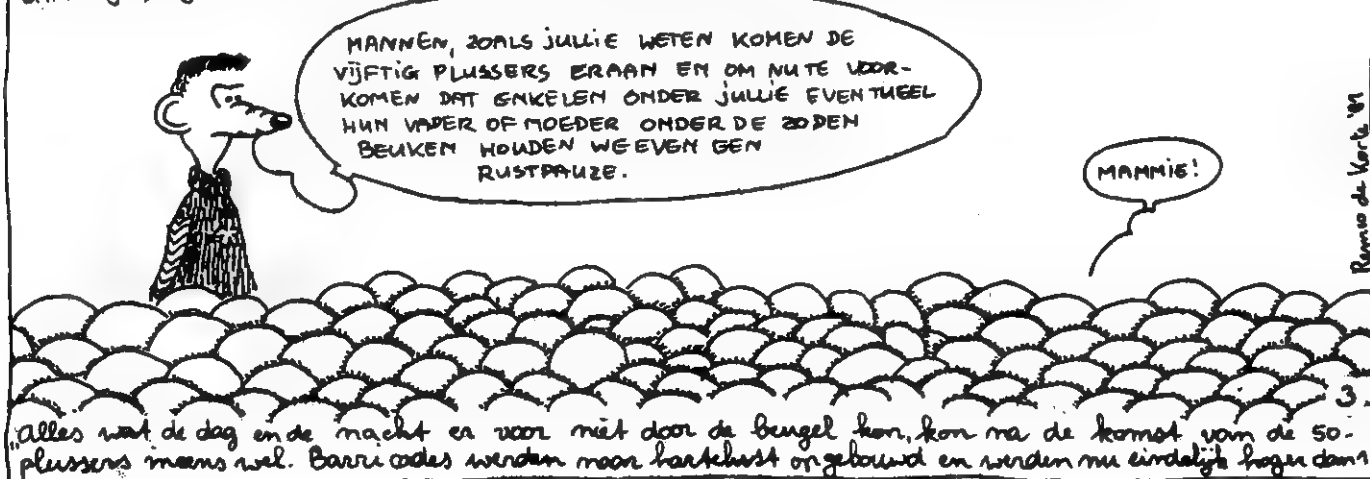 MANNEN, ZOALS JULLIE WETEN KOMEN DE
VIJFTIG PLUSSERS ERAAN EN OM NU TE VOOR-
KOMEN DAT ENKELEN ONDER JULLIE EVENTUEEL
HUN VADER OF MOEDER ONDER DE ZODEN
BEUKEN HOUDEN WE EVEN EEN
RUSTPAUZE.
MAMMIE!
Remco de Korte '81
3.
"alles wat de dag en de nacht er voor niet door de beugel kon, kon na de komst van de 50-
plussers ineens wel. Barricades werden naar hartelust opgebouwd en werden nu eindelijk hoger dan 1